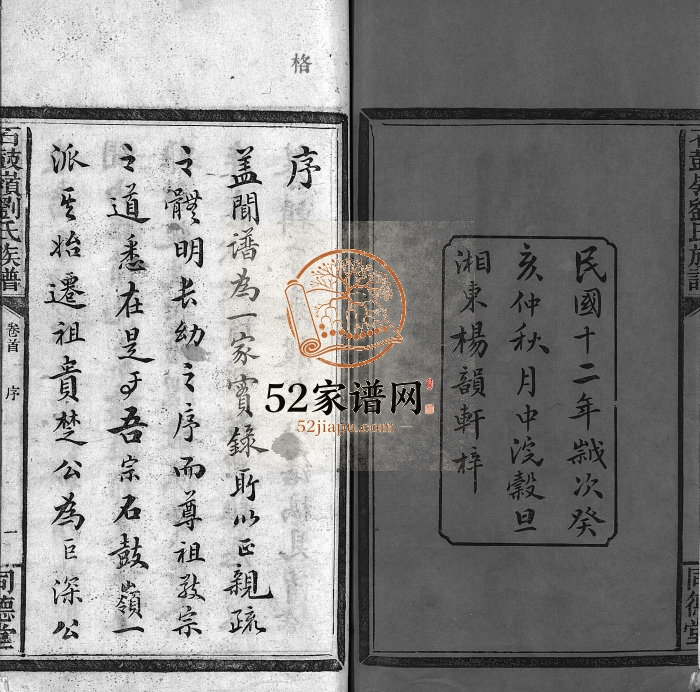 民國十二年歲次癸
亥仲秋月中浣穀旦
湘東楊韻軒梓
同德堂
格
序
蓋聞譜為一家實錄所以正親疏
之體明長幼之序而尊祖敬宗
之道悉在是乎吾宗石鼓嶺一
派其始遷祖貴楚公為巨深公
石鼓嶺劉氏族譜
卷首 序
一
同德堂
52家谱网
52jiapu.com